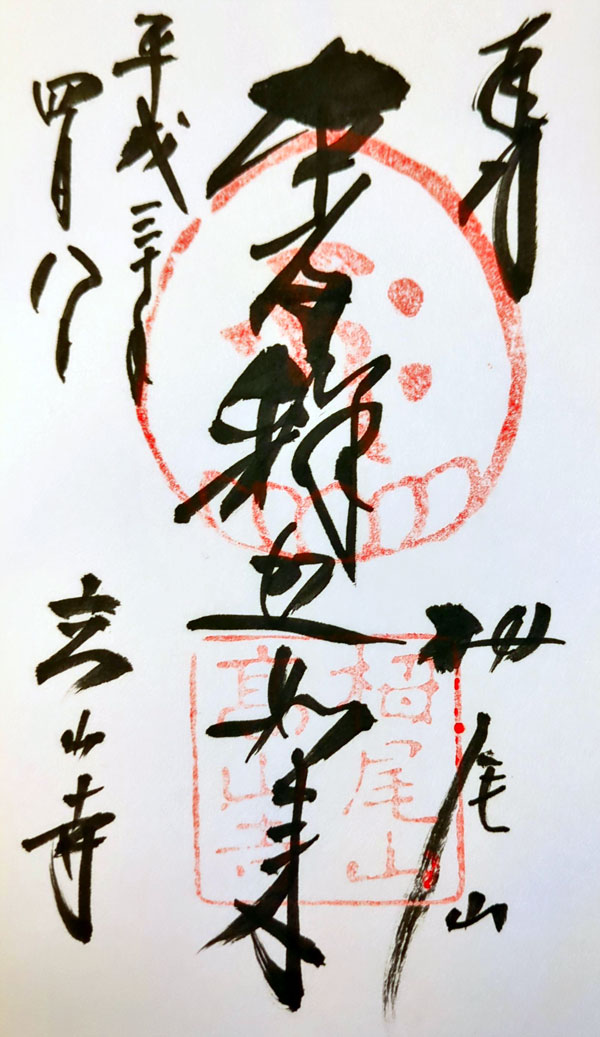 奉拝
栂尾山
釋迦如来
平成三十年
四月八日
高山寺
栂尾山
高山寺